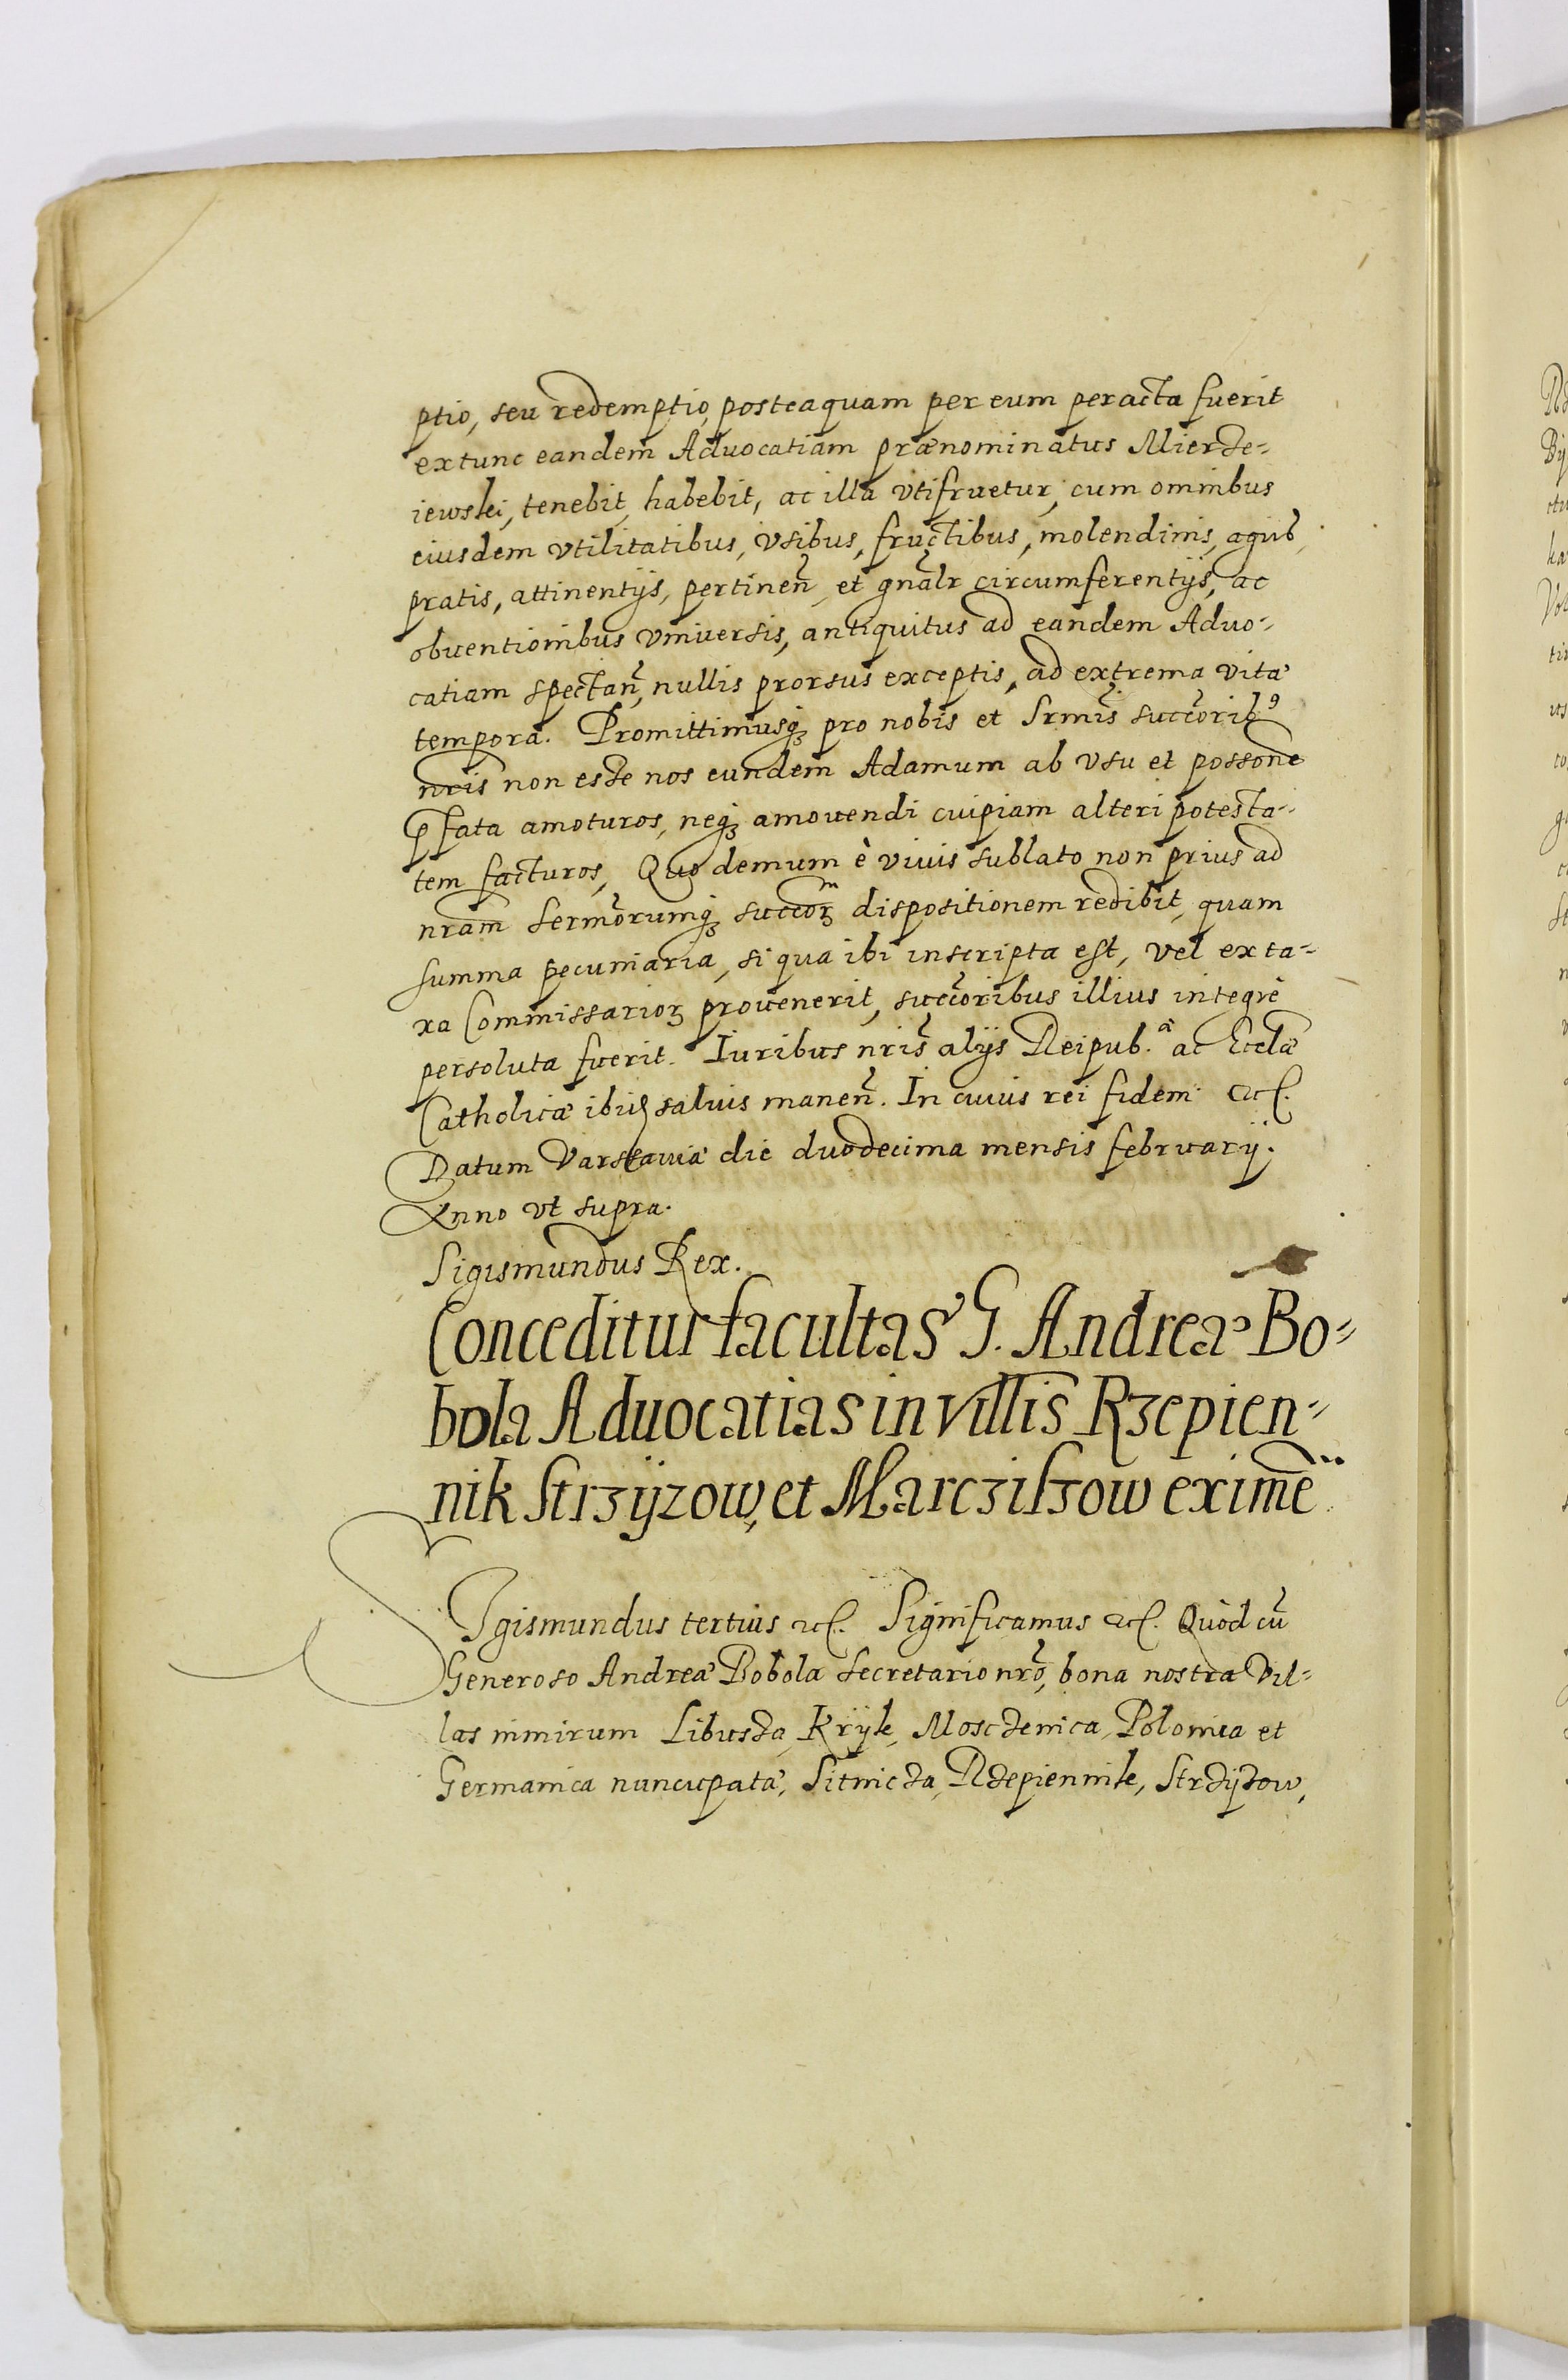 ptio, seu redemptio, posteaquam per eum peracta fuerit
extunc eandem Aduocatiam prænominatus Mierze-
iewski, tenebit, habebit, ac illa vtifruetur, cum omnibus
eiusdem vtilitatibus, vsibus, fructibus, molendinis, agris,
pratis, attinentijs, pertineñ, et gnãlr circumferentijs, ac
obuentionibus vniuersis, antiquitus ad eandem Aduo-
catiam spectañ, nullis prorsus exceptis, ad extrema vitæ
tempora. Promittimusq₃ pro nobis et Srmis̃ succõrib⁹
nris̃ non esse nos eundem Adamum ab vsu et possone
p̃fata amoturos, neq₃ amouendi cuipiam alteri potesta-
tem facturos, Quo demum è viuis sublato non prius ad
nram̃ sermõrumq₃ succoꝝ dispositionem redibit, quam
summa pecuniaria, si qua ibi inscripta est, vel ex ta-
xa Commissarioꝝ prouenerit, succõribus illius integrè
persoluta fuerit. Iuribus nris̃ alijs Reipub.ᵃ ac Eclæ
Catholicæ ibid saluis maneñ. In cuius rei fidem etc.
Datum Varsauiæ die duodecima mensis februarij.
Anno vt supra.
Sigismundus Rex.
Conceditur facultas G. Andreæ Bo-
bola Aduocatias in villis Rzepien-
nik Strzÿzow, et Marcziszow eximẽ
SIgismundus tertius etc. Significamus etc. Quòd cũ
Generoso Andreæ Bobola Secretario nrõ, bona nostra Vil-
las nimirum Libusza, Krÿk, Moszczenica, Polonica et
Germanica nuncupatæ, Sitnicza, Rzepiennik, Strzÿzow,